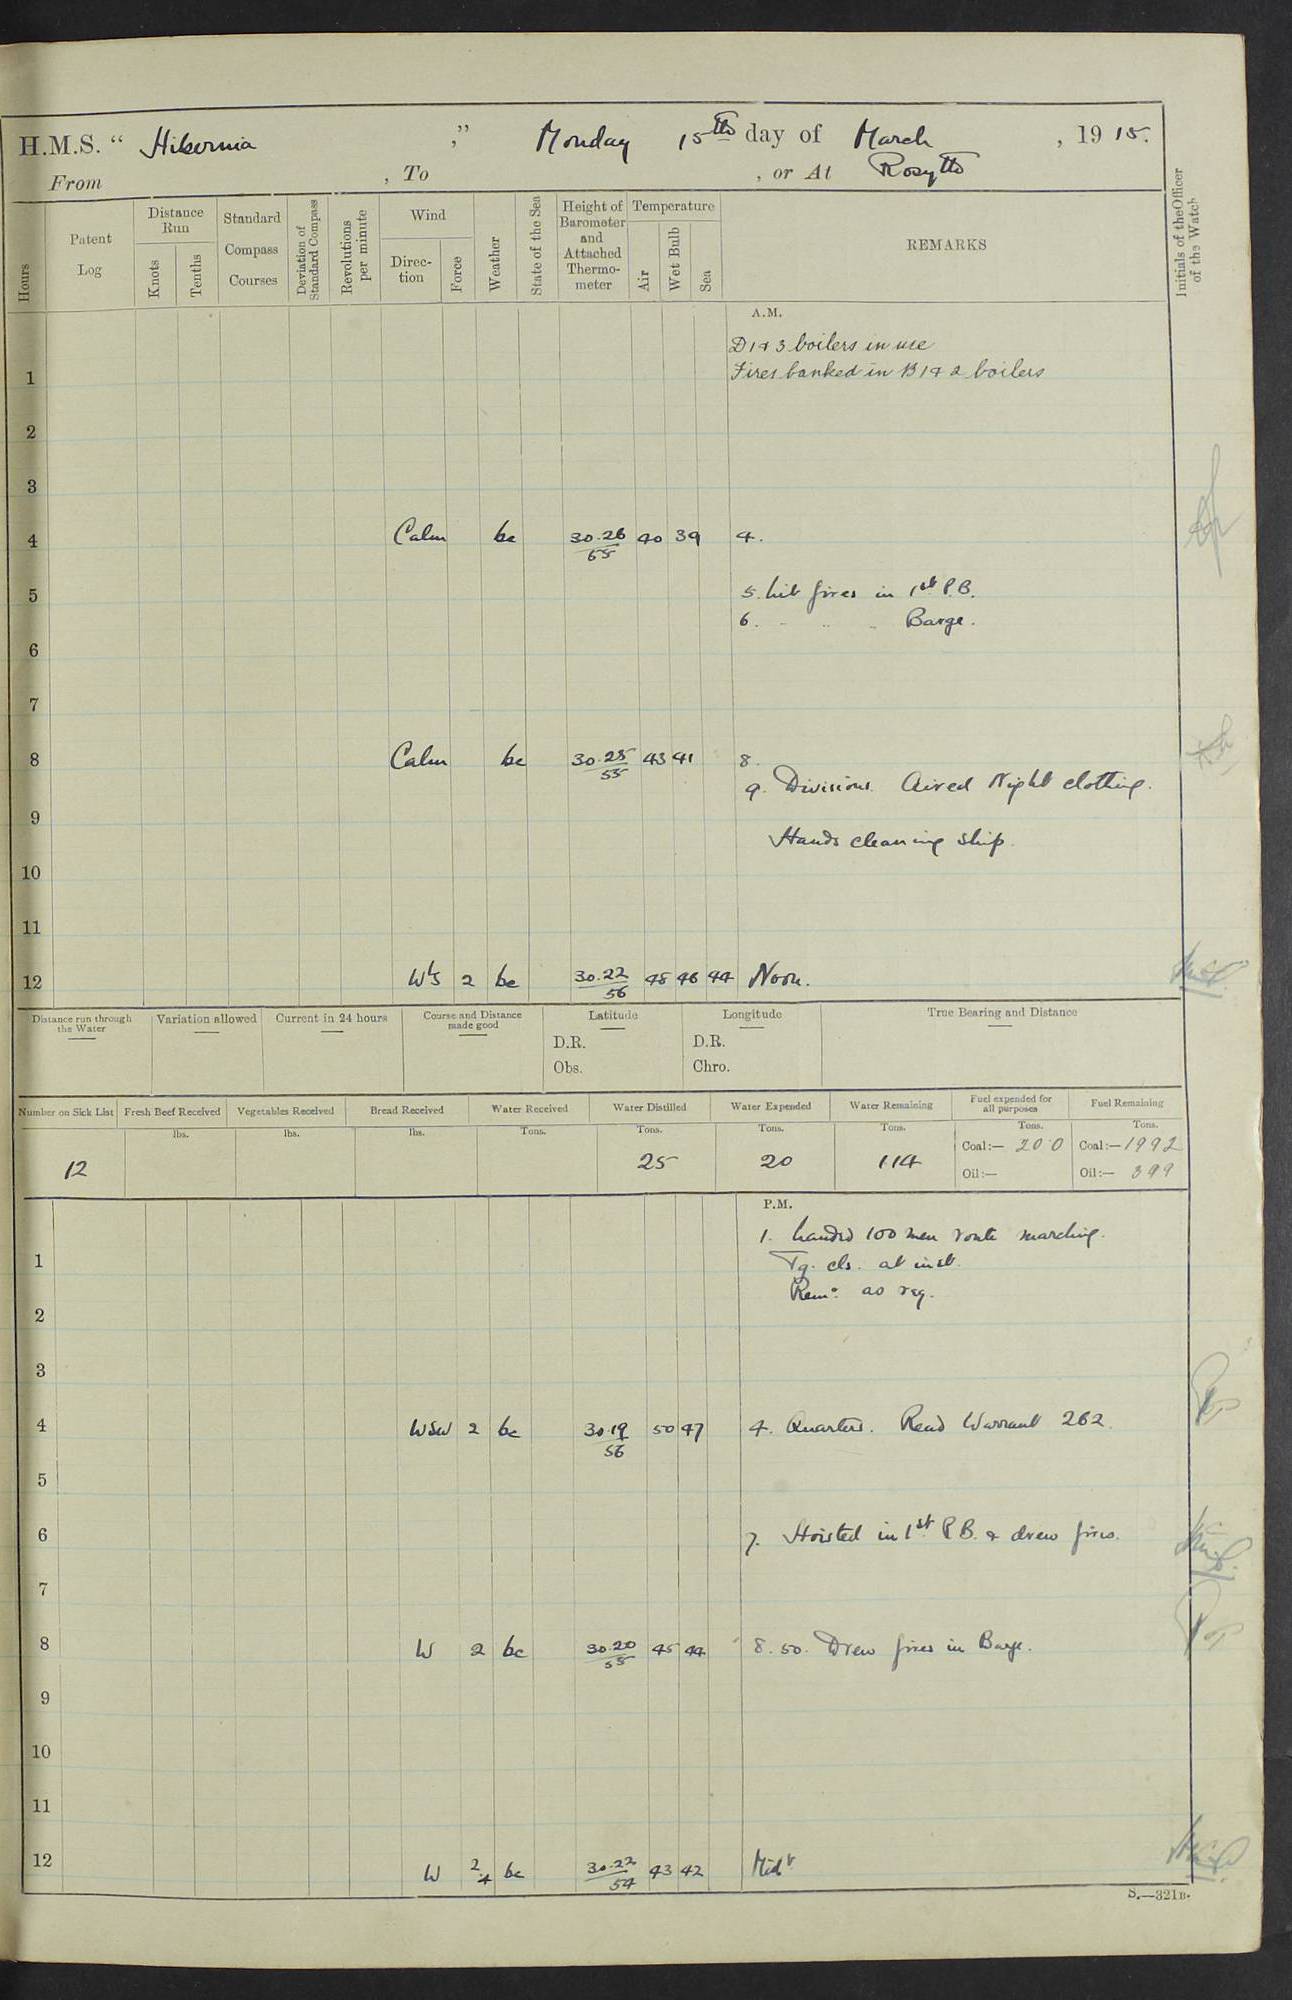 H.M.S. " Hibernia " Monday 15th day of March, 1915.
From , To , or At Rosyth
Hours
Patent Log
Distance Run
Knots
Tenths
Standard Compass Courses
Deviation of Standard Compass
Revolutions per minute
Wind
Direction
Force
Weather
State of the Sea
Height of Barometer and Attached Thermometer
Temperature
Air
Wet Bulb
Sea
REMARKS
Initials of the Officer of the Watch
A.M.
D 1 & 3 boilers in use
1 Fires banked in B 1 & 2 boilers
2
3
4 Calm bc 30.26/55 40 39 4.
5 5. Lit fires in 1st P.B.
6. - " " Barge.
6
7
8 Calm bc 30.25/55 43 41 8.
9. Divisions. Aired Night clothing.
9
Hands cleaning ship.
10
11
12 W'ly 2 bc 30.22/56 48 46 44 Noon.
Distance run through the Water
Variation allowed
Current in 24 hours
Course and Distance made good
Latitude
D.R.
Obs.
Longitude
D.R.
Chro.
True Bearing and Distance
Number on Sick List
Fresh Beef Received
Vegetables Received
Bread Received
Water Received
Water Distilled
Water Expended
Water Remaining
Fuel expended for all purposes
Fuel Remaining
lbs. lbs. lbs. Tons. Tons. Tons. Tons. Tons. Tons.
12 25 20 114 Coal:— 20.0 Coal:— 1992
Oil:— Oil:— 399
P.M.
1. Landed 100 men route marching.
1 Tg. cls. at inst.
Remr. as req.
2
3
4 WSW 2 bc 30.19/56 50 47 4. Quarters. Read Warrant 262.
5
6 7. Hoisted in 1st P.B. & drew fires.
7
8 W 2 bc 30.20/55 45 44 8.50. Drew fires in Barge.
9
10
11
12 W 2.4 bc 30.22/54 43 42 Midt
S.—321B.